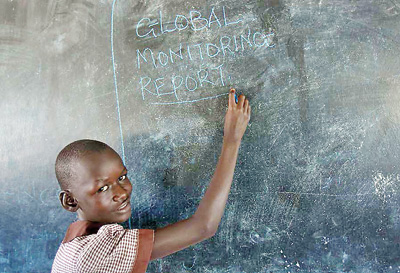 GLOBAL
MONITORING
REPORT